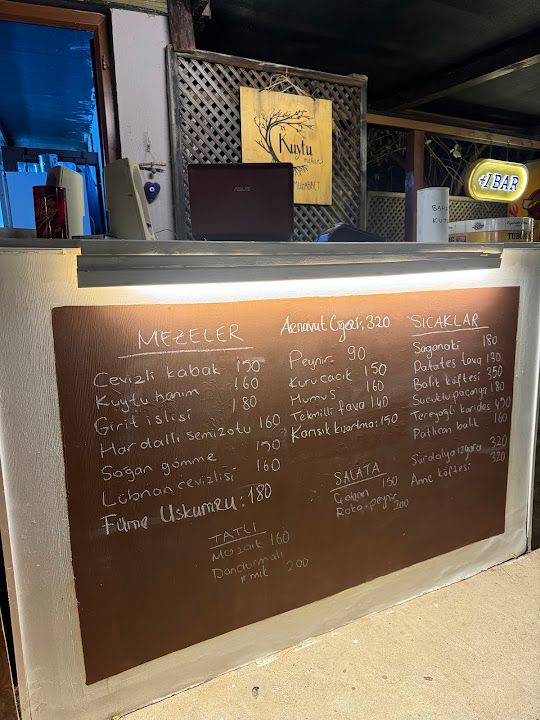 Kuytu
MUHABBET
ASUS
+1 BAR
BAH
KUT
TUB
MEZELER
Cevizli kabak 150
Kuytu hanım 160
Girit islisi 180
Hardallı semizotu 160
Soğan gömme 150
Lübnan cevizlisi 160
Füme Uskumru: 180
TATLI
Mozaik 160
Dondurmalı
irmik 200
Arnavut Ciğeri: 320
Peynir 90
Kuru cacık 150
Humus 160
Tekmilli fava 140
Karışık kızartma: 150
SALATA
Çoban 150
Roka-peynir 200
SICAKLAR
Saganaki 180
Patates tava 130
Balık köftesi 350
Sucuklu paçanga 180
Tereyağlı karides 450
Patlıcan balık 160
Sardalya ızgara 320
Anne köftesi 320